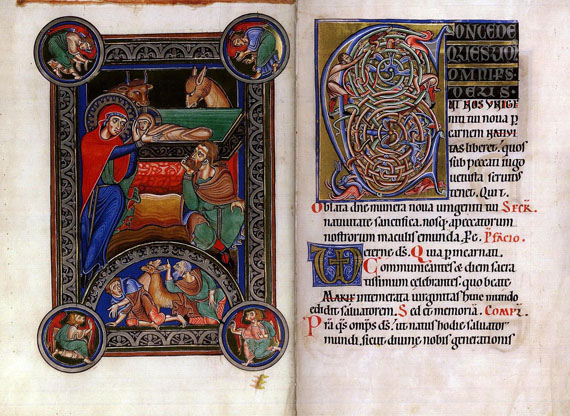 CONCEDE
QESUM
OMNIPS
DEUS.
UT NOS UNIGE
niti tui nova p
carnem NATIVI
TAS liberet. quos
sub peccati iugo
vetusta servitus
tenet. 
Oblata dne munera nova unigeniti tui SECR.
nativitate sanctifica. nosq; a peccatorum
nostrorum maculis emunda. 
eterne ds. Quia p incarnati
Communicantes & diem sacra
tissimum celebrantes. quo beate
MARIE intemerata virginitas huic mundo
edidit salvatorem. Sed et memoriam. 
Pra qs omps ds. ut natus hodie salvator
mundi. sicut divine nobis generationis